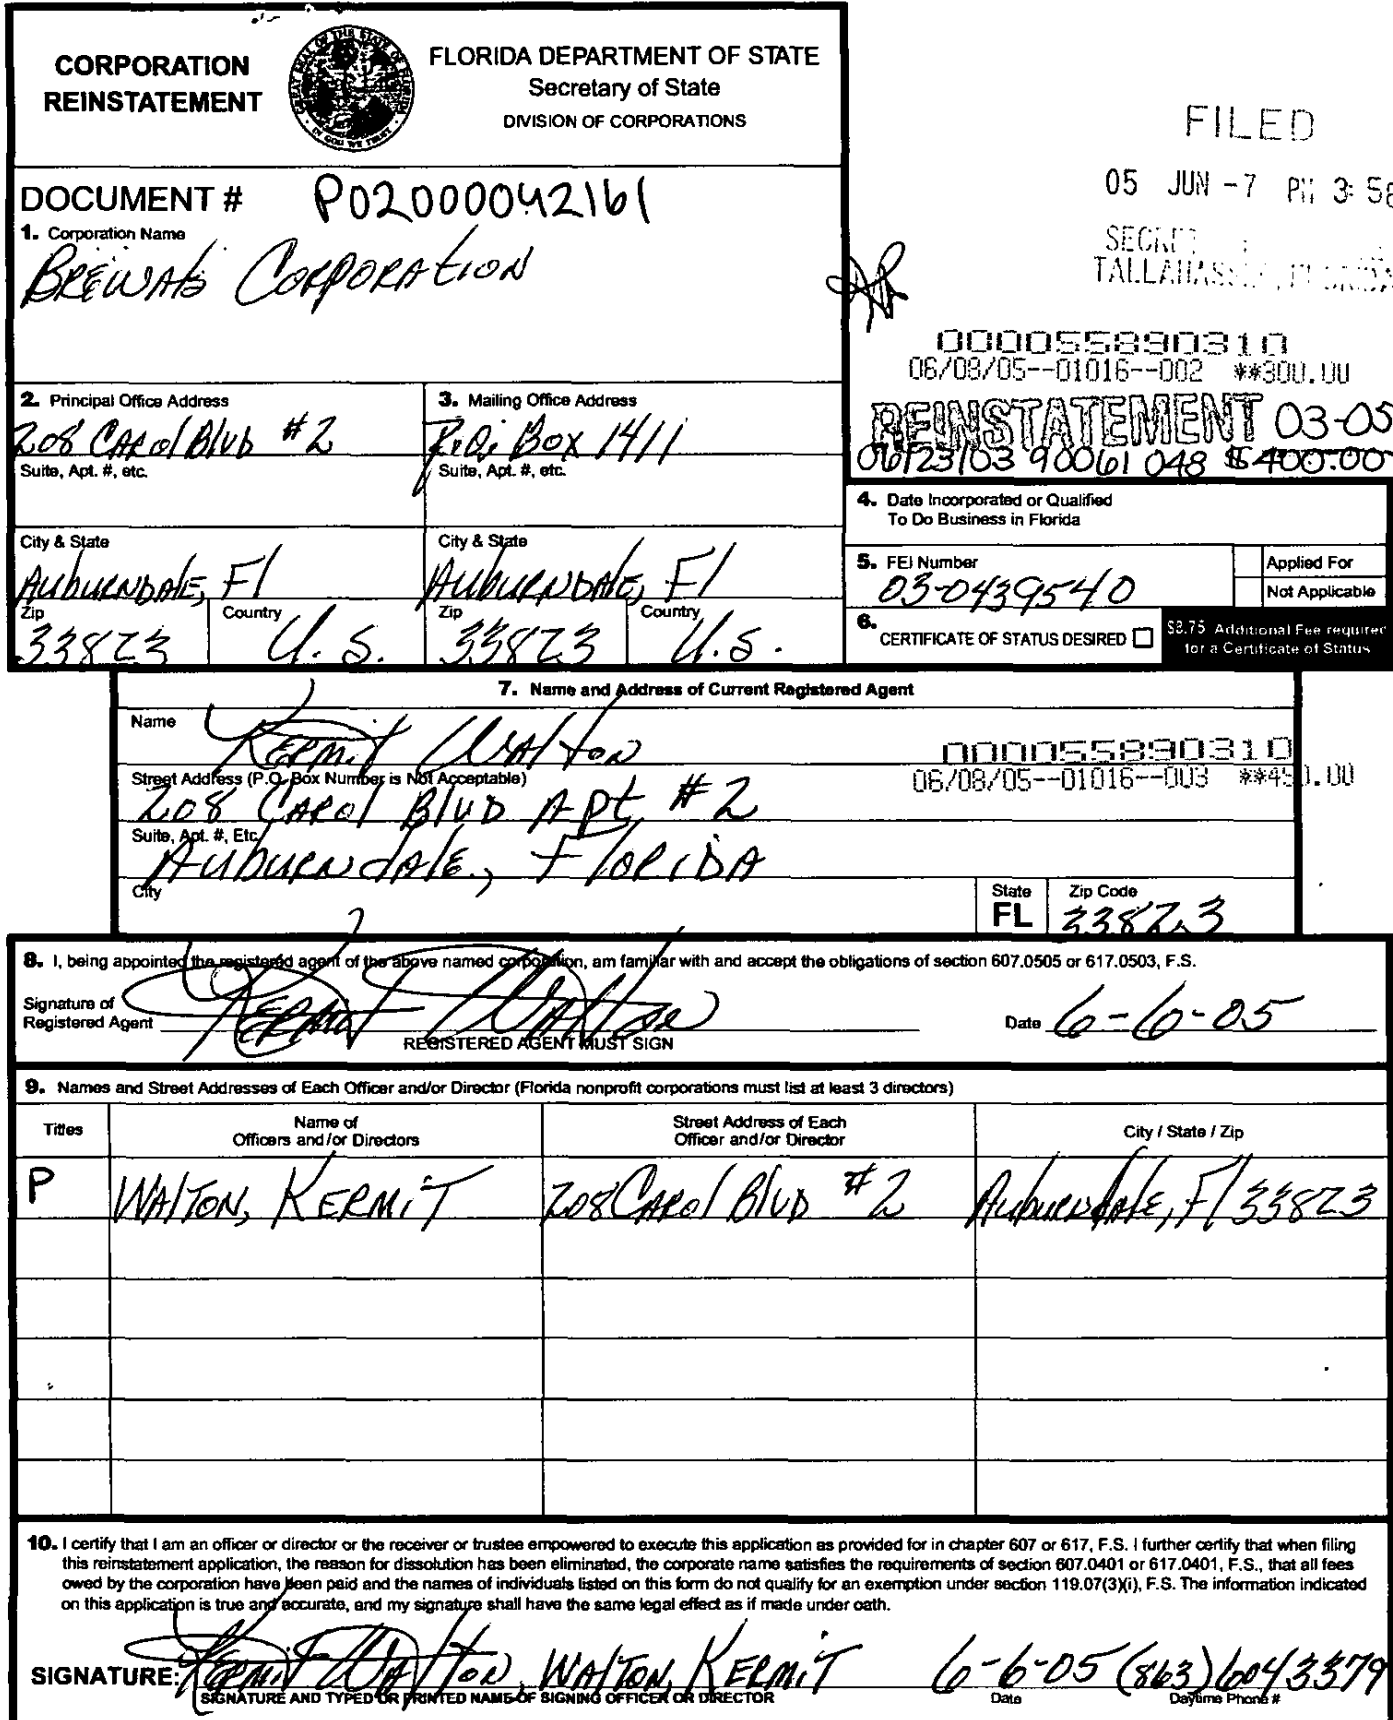 CORPORATION
REINSTATEMENT
FLORIDA DEPARTMENT OF STATE
Secretary of State
DIVISION OF CORPORATIONS
FILED
05 JUN -7 PM 3:58
TALLAHASSEE, FLORIDA
DOCUMENT # P02000042161
1. Corporation Name
Corporation
000055890310
06/08/05--01016--002 **300.00
REINSTATEMENT 03-05
06/23/03 90061 048 $400.00
2. Principal Office Address
208 Carol Blvd #2
Suite, Apt. #, etc.
City & State
Auburndale, Fl
Zip
33823
Country
U.S.
3. Mailing Office Address
P.O. Box 1411
Suite, Apt. #, etc.
City & State
Auburndale, Fl
Zip
33823
Country
U.S.
4. Date Incorporated or Qualified
To Do Business in Florida
5. FEI Number
03-0439540
Applied For
Not Applicable
6.
CERTIFICATE OF STATUS DESIRED
$8.75 Additional Fee required
for a Certificate of Status
7. Name and Address of Current Registered Agent
Name
Kermit Walton
000055890310
06/08/05--01016--003 **450.00
Street Address (P.O. Box Number is Not Acceptable)
208 Carol Blvd Apt #2
Suite, Apt. #, Etc.
Auburndale, Florida
City
State
FL
Zip Code
33823
8. I, being appointed the registered agent of the above named corporation, am familiar with and accept the obligations of section 607.0505 or 617.0503, F.S.
Signature of
Registered Agent
Kermit Walton
REGISTERED AGENT MUST SIGN
Date 6-6-05
9. Names and Street Addresses of Each Officer and/or Director (Florida nonprofit corporations must list at least 3 directors)
Titles
Name of
Officers and/or Directors
Street Address of Each
Officer and/or Director
City / State / Zip
P Walton, Kermit 208 Carol Blvd #2 Auburndale, Fl 33823
10. I certify that I am an officer or director or the receiver or trustee empowered to execute this application as provided for in chapter 607 or 617, F.S. I further certify that when filing
this reinstatement application, the reason for dissolution has been eliminated, the corporate name satisfies the requirements of section 607.0401 or 617.0401, F.S., that all fees
owed by the corporation have been paid and the names of individuals listed on this form do not qualify for an exemption under section 119.07(3)(i), F.S. The information indicated
on this application is true and accurate, and my signature shall have the same legal effect as if made under oath.
SIGNATURE: Kermit Walton, Walton, Kermit 6-6-05 (863) 6043379
SIGNATURE AND TYPED OR PRINTED NAME OF SIGNING OFFICER OR DIRECTOR
Date
Daytime Phone #